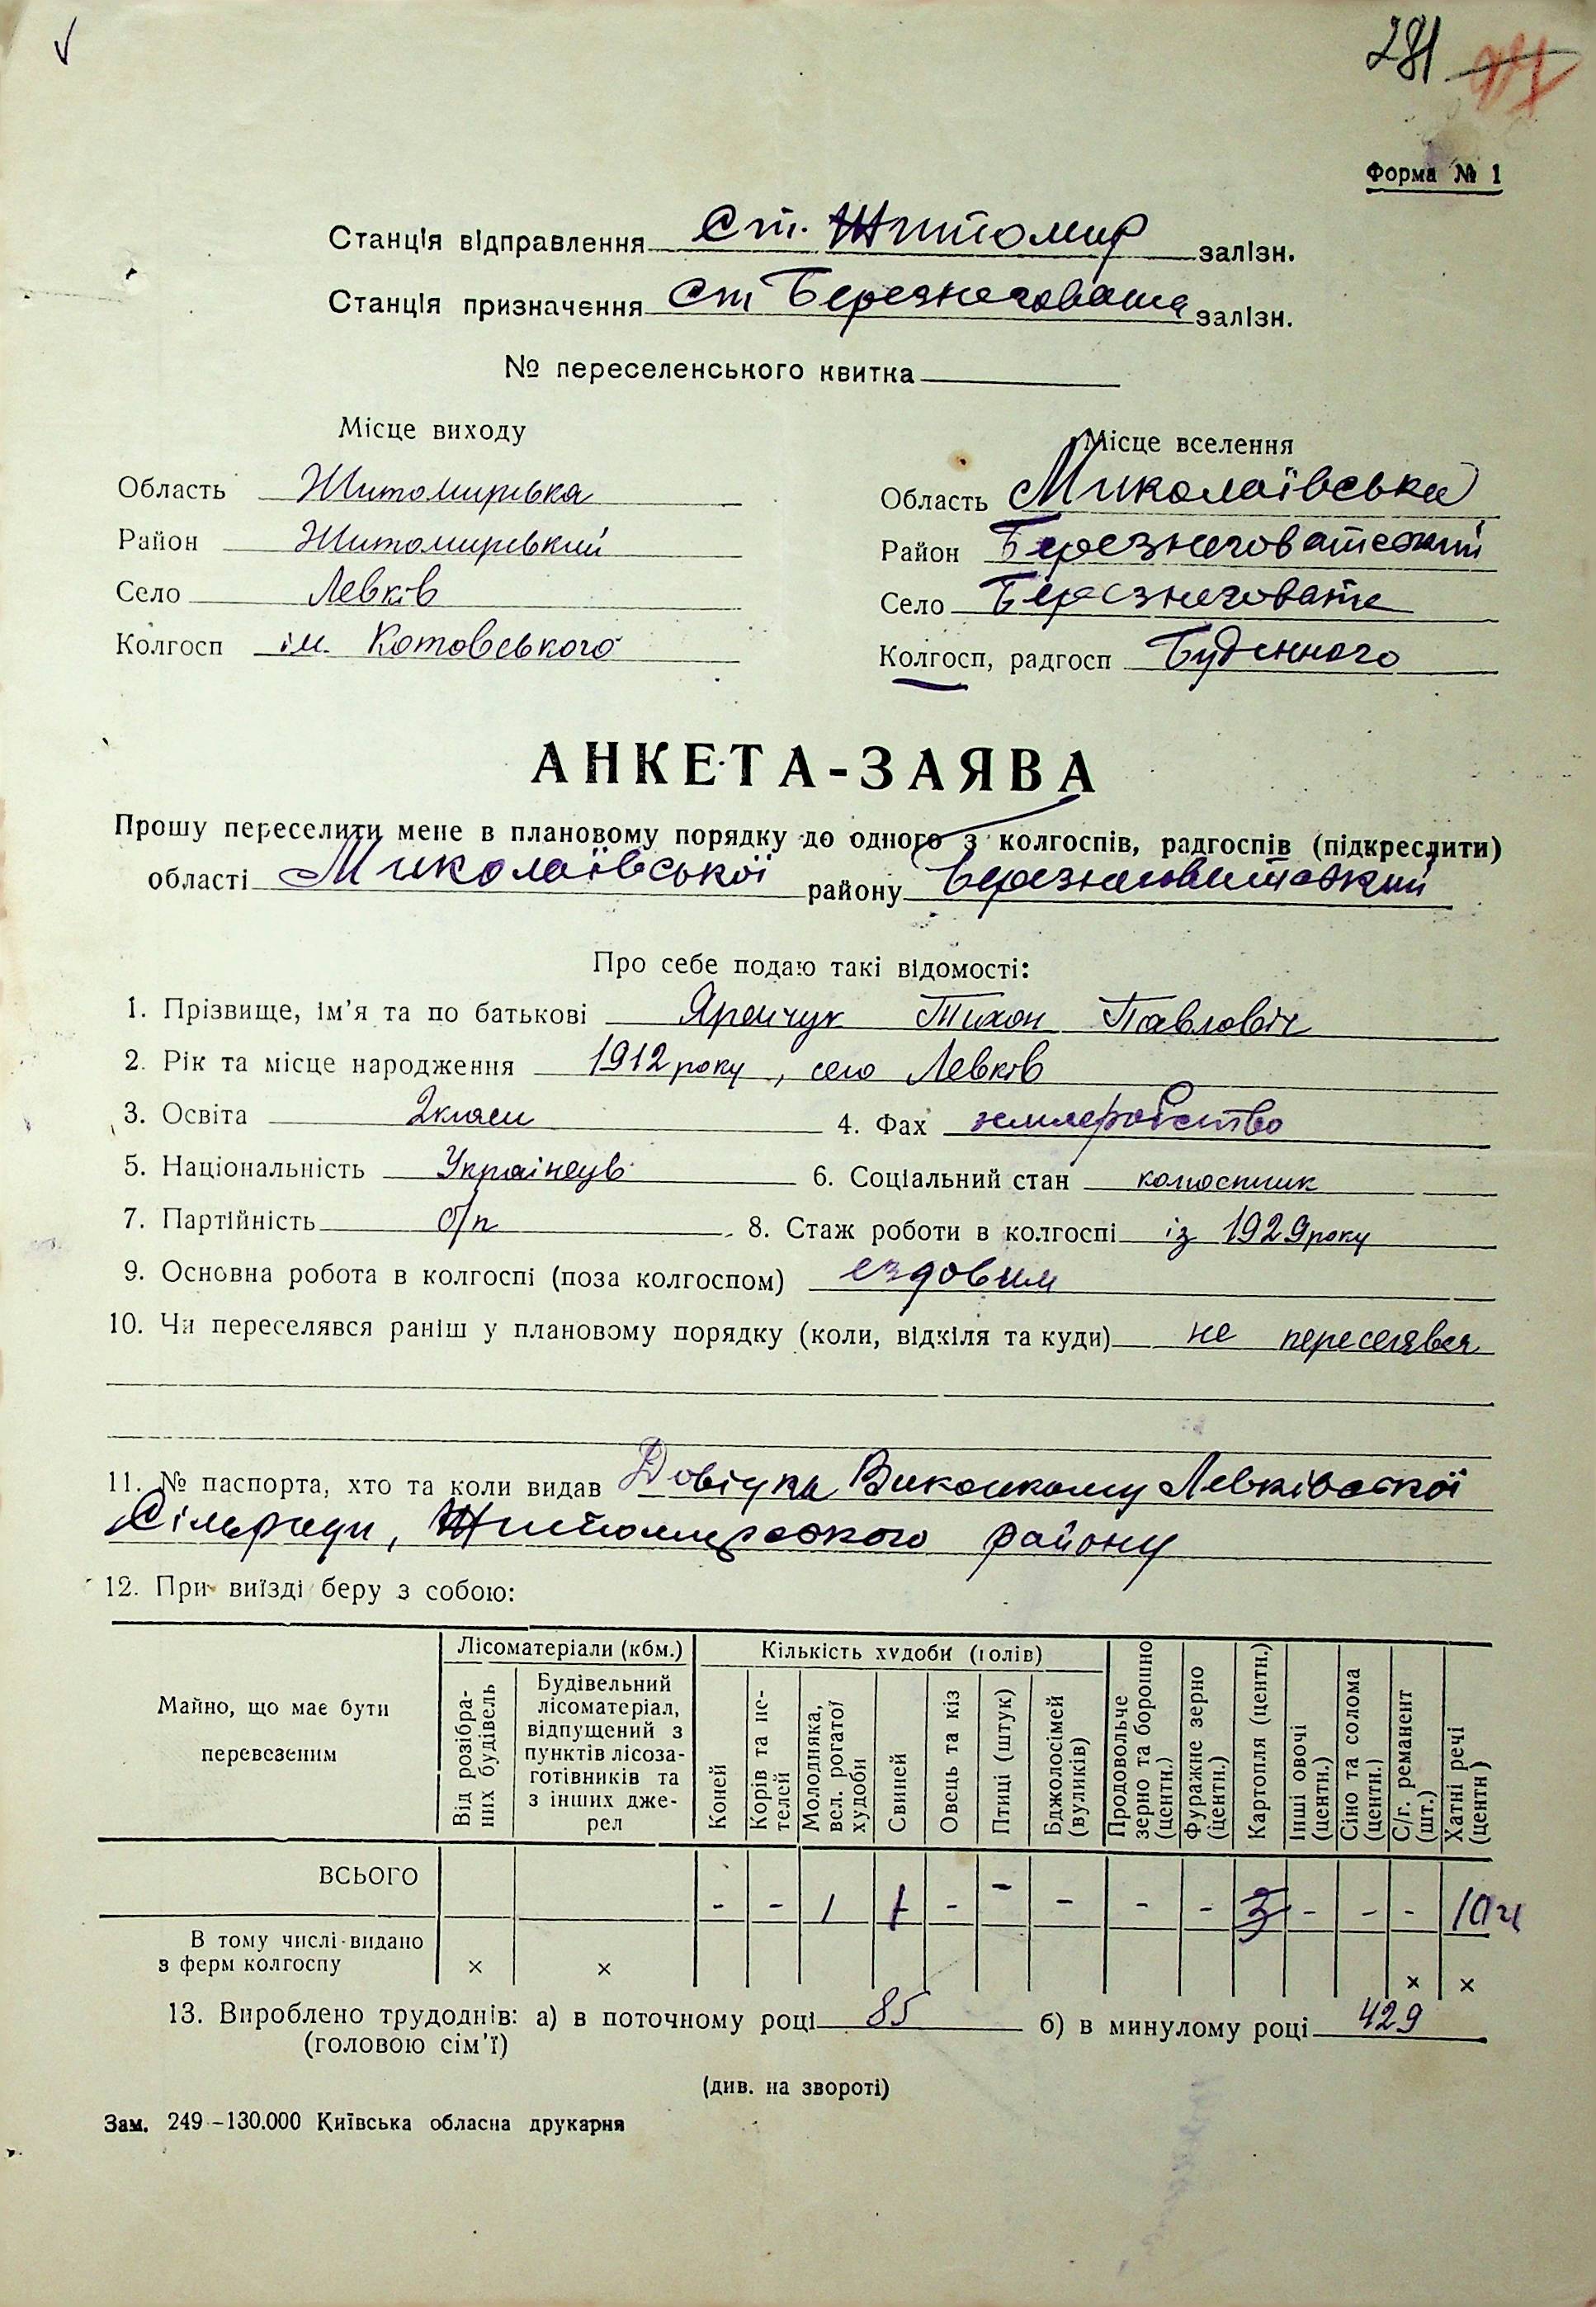 281
Форма № 1
Станція відправлення ст. Житомир залізн.
Станція призначення ст Березнеговата залізн.
№ переселенського квитка
Місце виходу
Область Житомирська
Район Житомирський
Село Левків
Колгосп ім. Котовського
Місце вселення
Область Миколаївська
Район Березнеговатський
Село Березнеговате
Колгосп, радгосп Буденного
АНКЕТА-ЗАЯВА
Прошу переселити мене в плановому порядку до одного з колгоспів, радгоспів (підкреслити)
області Миколаївської району Березнеговатський
Про себе подаю такі відомості:
1. Прізвище, ім’я та по батькові Яремчук Тихон Павлович
2. Рік та місце народження 1912 року, село Левків
3. Освіта 2 класи 4. Фах землеробство
5. Національність Українець 6. Соціальний стан колгоспник
7. Партійність б/п 8. Стаж роботи в колгоспі із 1929 року
9. Основна робота в колгоспі (поза колгоспом) ездовим
10. Чи переселявся раніш у плановому порядку (коли, відкіля та куди) не переселявся
11. № паспорта, хто та коли видав Довідка Виконкому Левківської
Сільради, Житомирського району
12. При виїзді беру з собою:
Майно, що має бути перевезеним
Лісоматеріали (кбм.)
Від розібраних будівель
Будівельний лісоматеріал, відпущений з пунктів лісозаготівників та з інших джерел
Кількість худоби (голів)
Коней
Корів та нетелей
Молодняка, вел. рогатої худоби
Свиней
Овець та кіз
Птиці (штук)
Бджолосімей (вуликів)
Продовольче зерно та борошно (центн.)
Фуражне зерно (центн.)
Картопля (центн.)
Інші овочі (центн.)
Сіно та солома (центн.)
С/г. реманент (шт.)
Хатні речі (центн)
ВСЬОГО - - 1 1 - - - - - 3 - - - 10 ц
В тому числі видано з ферм колгоспу × × × ×
13. Вироблено трудоднів: а) в поточному році 85 б) в минулому році 429
(головою сім’ї)
(див. на звороті)
Зам. 249–130.000 Київська обласна друкарня